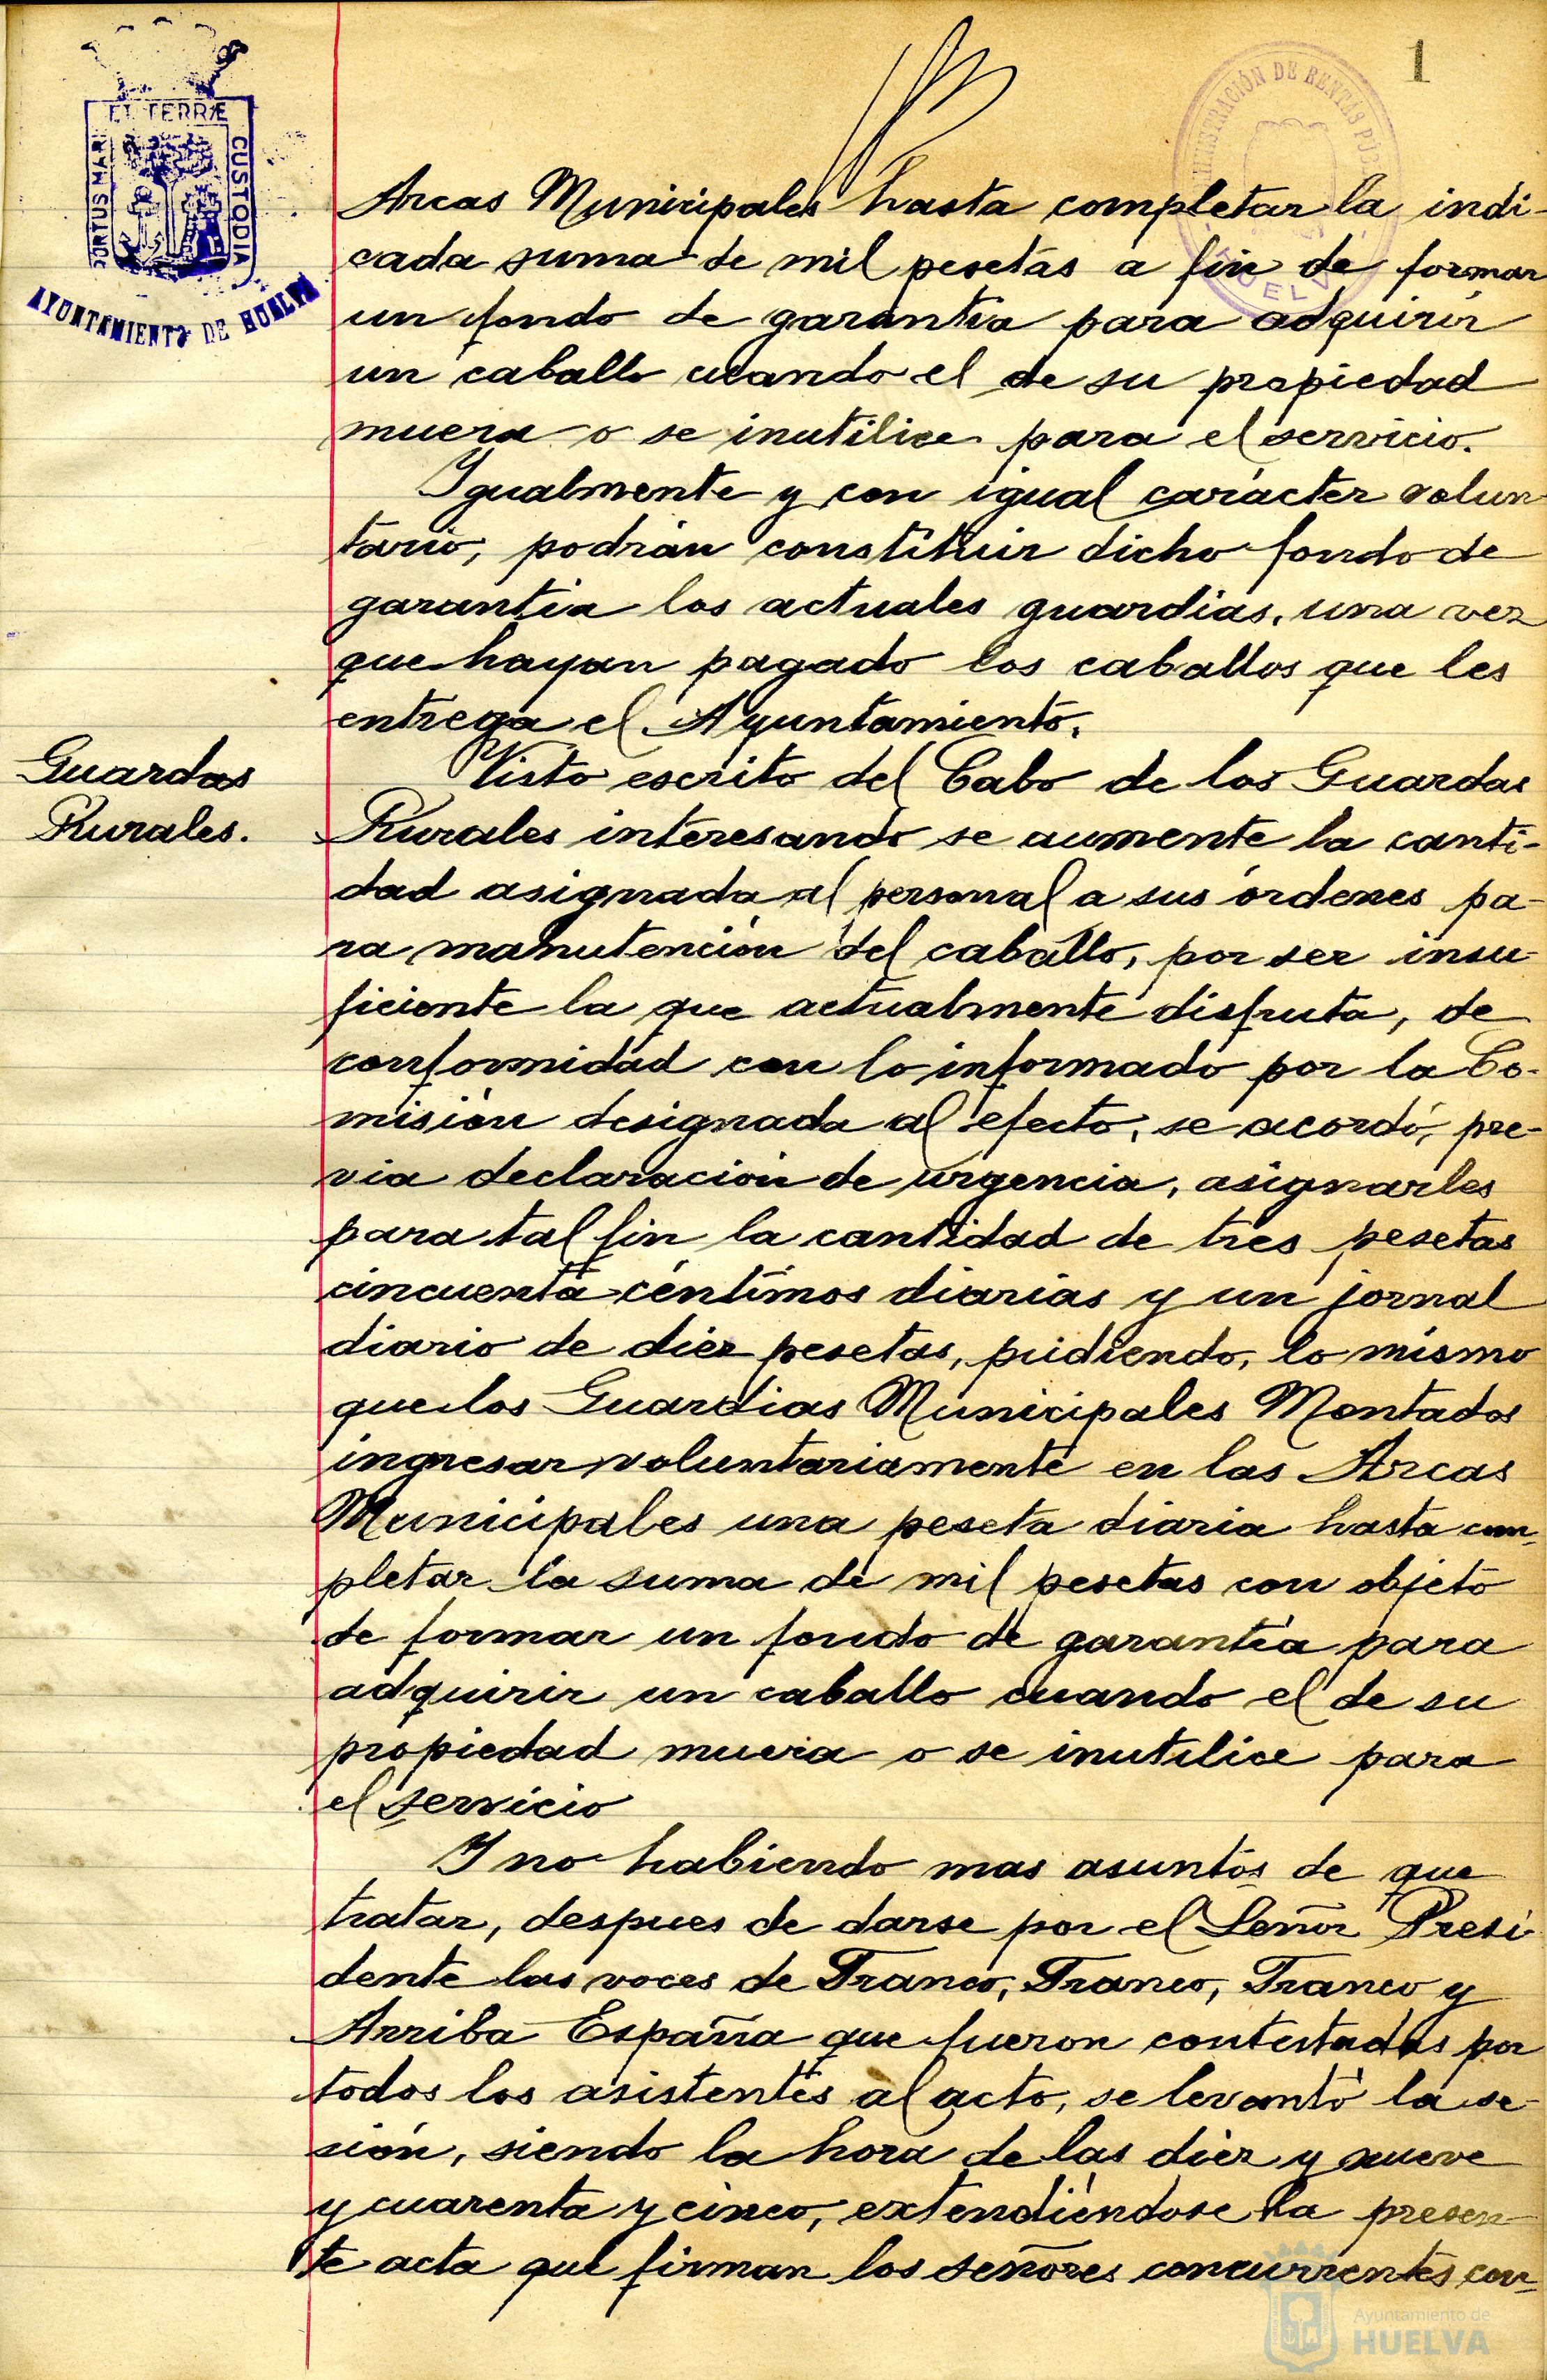 1
PORTUS MARIS
ET TERRÆ
CUSTODIA
AYUNTAMIENTO DE HUELVA
ADMINISTRACIÓN DE RENTAS PÚBLICAS
HUELVA
Arcas Municipales hasta completar la indi-
cada suma de mil pesetas a fin de formar
un fondo de garantia para adquirir
un caballo cuando el de su propiedad
muera o se inutilice para el servicio.
Igualmente y con igual carácter volun-
tario, podrán constituir dicho fondo de
garantia los actuales guardias, una vez
que hayan pagado los caballos que les
entrega el Ayuntamiento.
Guardas
Rurales.
Visto escrito del Cabo de los Guardas
Rurales interesando se aumente la canti-
dad asignada al personal a sus órdenes pa-
ra manutención del caballo, por ser insu-
ficiente la que actualmente disfruta, de
conformidad con lo informado por la Co-
misión designada al efecto, se acordó, pre-
via declaración de urgencia, asignarles
para tal fin la cantidad de tres pesetas
cincuenta céntimos diarias y un jornal
diario de diez pesetas, pudiendo, lo mismo
que los Guardias Municipales Montados
ingresar voluntariamente en las Arcas
Municipales una peseta diaria hasta com-
pletar la suma de mil pesetas con objeto
de formar un fondo de garantía para
adquirir un caballo cuando el de su
propiedad muera o se inutilice para
el servicio
Y no habiendo mas asuntos de que
tratar, despues de darse por el Señor Presi-
dente las voces de Franco, Franco, Franco y
Arriba España que fueron contestadas por
todos los asistentes al acto, se levantó la se-
sión, siendo la hora de las diez y nueve
y cuarenta y cinco, extendiéndose la presen-
te acta que firman los señores concurrentes con-
Ayuntamiento de
HUELVA